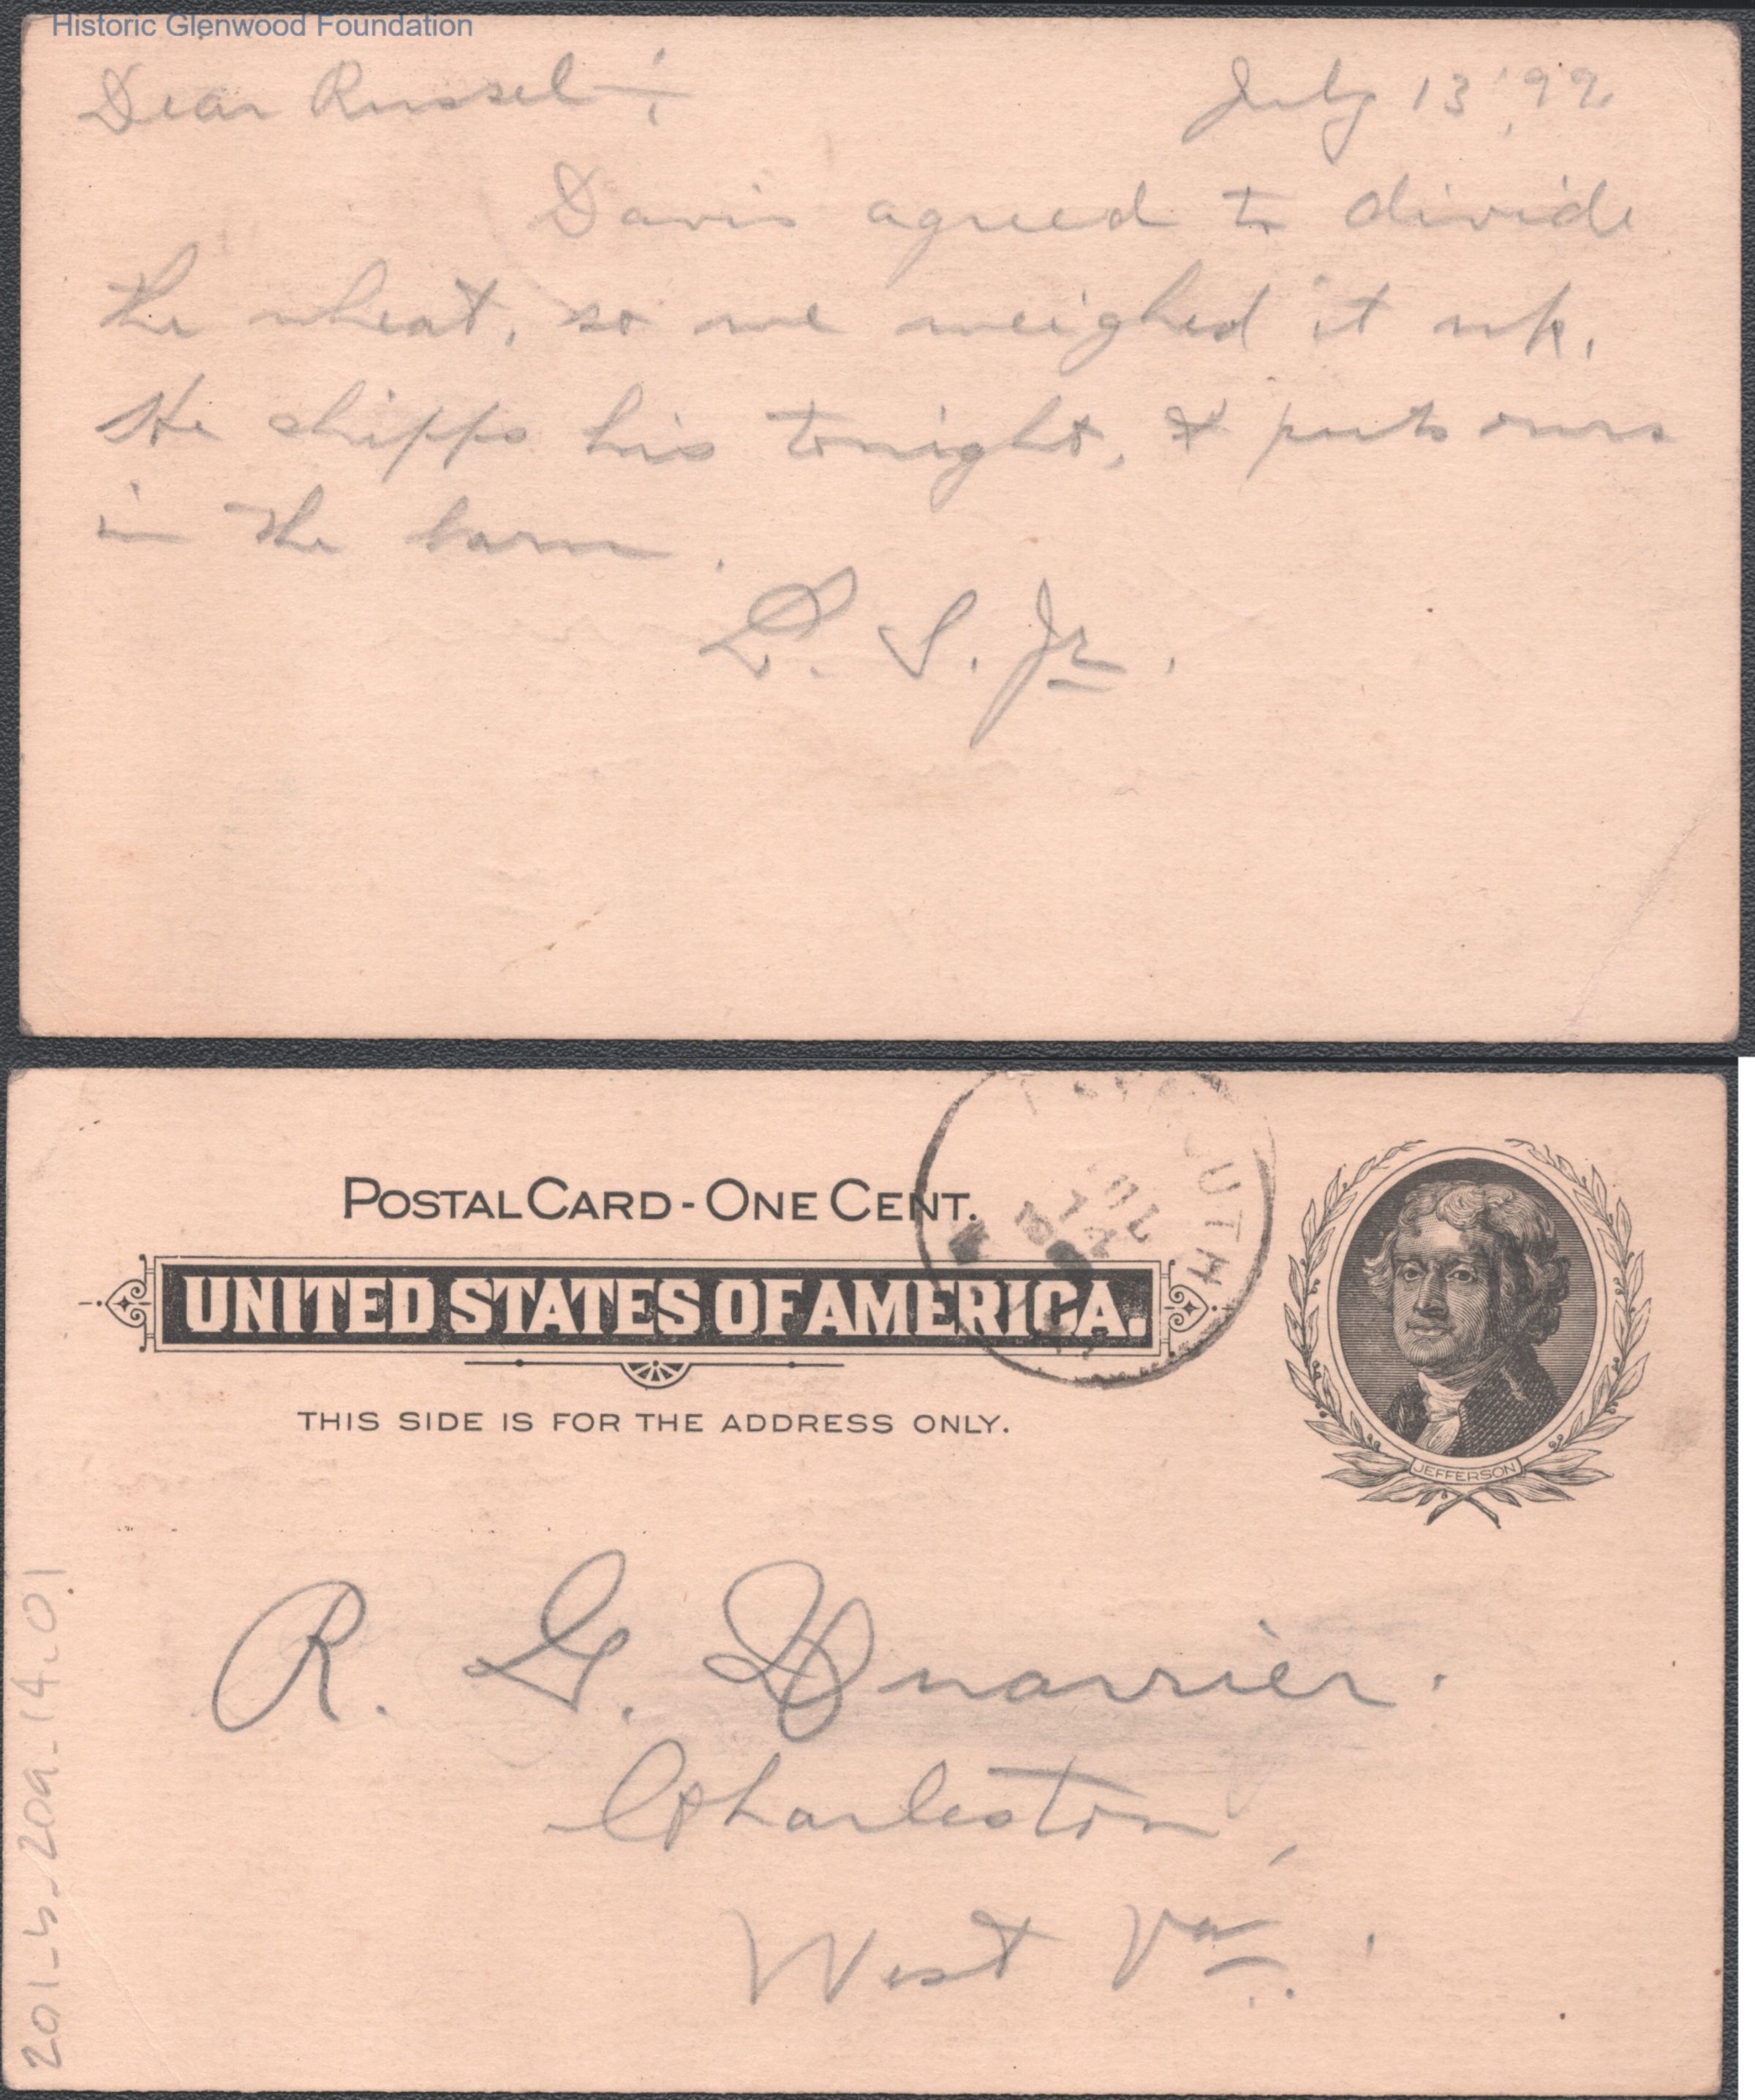 Historic Glenwood Foundation
Dear Russel:— July 13, '99.
Davis agreed to divide
the wheat, so we weighed it up.
He shipps his tonight, & puts ours
in the barn.
L. S. Jr.
POSTAL CARD - ONE CENT.
UNITED STATES OF AMERICA.
THIS SIDE IS FOR THE ADDRESS ONLY.
JUL
14
JEFFERSON
R. G. Quarrier.
Charleston,
West Va.
201-5-20a-14.01